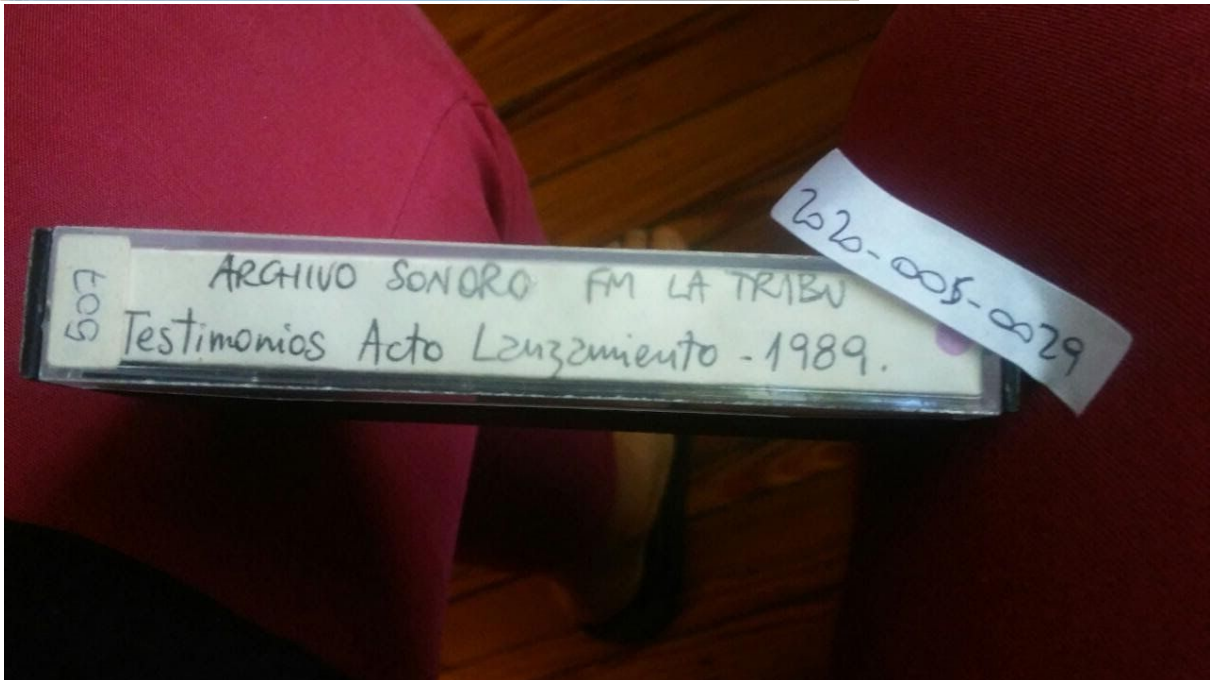 507
ARCHIVO SONORO FM LA TRIBU
Testimonios Acto Lanzamiento - 1989.
2020-005-0029